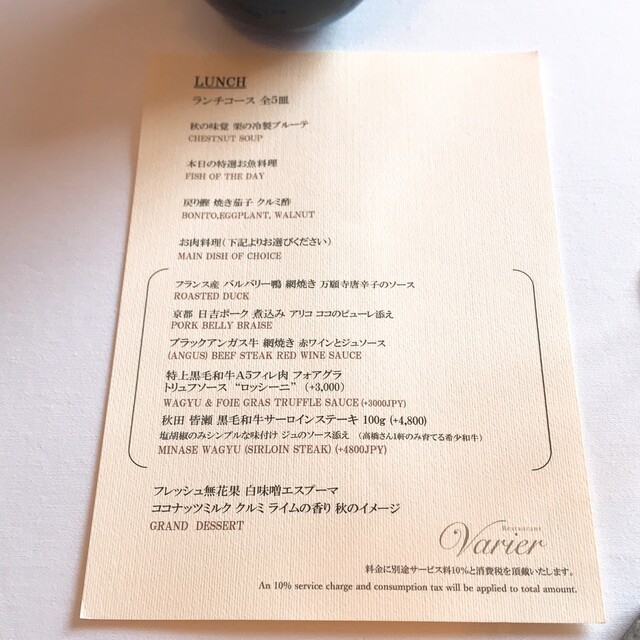 LUNCH
ランチコース 全5皿
秋の味覚 栗の冷製ブルーテ
CHESTNUT SOUP
本日の特選お魚料理
FISH OF THE DAY
戻り鰹 焼き茄子 クルミ酢
BONITO,EGGPLANT, WALNUT
お肉料理（下記よりお選びください）
MAIN DISH OF CHOICE
フランス産 バルバリー鴨 網焼き 万願寺唐辛子のソース
ROASTED DUCK
京都 日吉ポーク 煮込み アリコ ココのピューレ添え
PORK BELLY BRAISE
ブラックアンガス牛 網焼き 赤ワインとジュソース
(ANGUS) BEEF STEAK RED WINE SAUCE
特上黒毛和牛A5フィレ肉 フォアグラ
トリュフソース “ロッシーニ” （+3,000）
WAGYU & FOIE GRAS TRUFFLE SAUCE (+3000JPY)
秋田 皆瀬 黒毛和牛サーロインステーキ 100g (+4,800)
塩胡椒のみシンプルな味付け ジュのソース添え （高橋さん1軒のみ育てる希少和牛）
MINASE WAGYU (SIRLOIN STEAK) (+4800JPY)
フレッシュ無花果 白味噌エスプーマ
ココナッツミルク クルミ ライムの香り 秋のイメージ
GRAND DESSERT
Restaurant
Varier
料金に別途サービス料10%と消費税を頂戴いたします。
An 10% service charge and consumption tax will be applied to total amount.